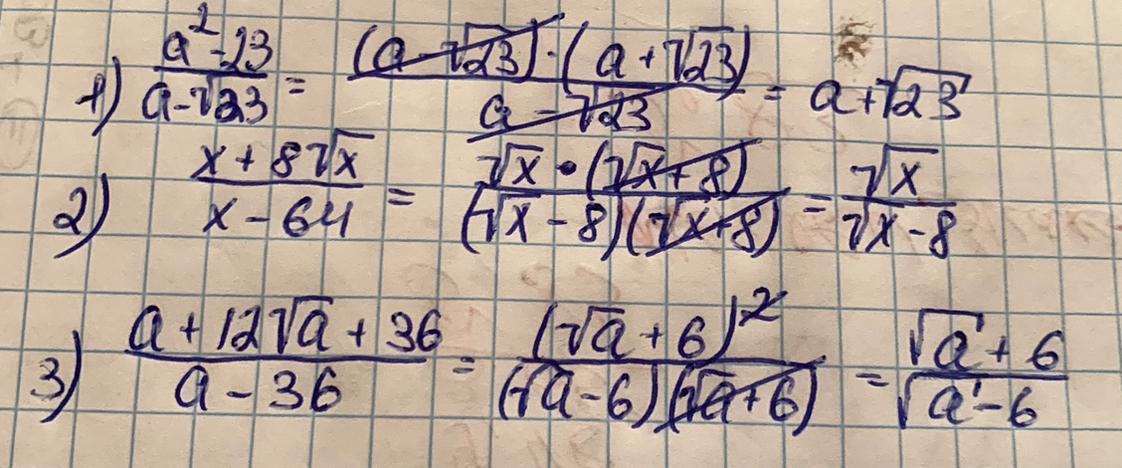 1) (a²-23)/(a-√23) = ((a-√23)·(a+√23))/(a-√23) = a+√23
2) (x+8√x)/(x-64) = (√x·(√x+8))/((√x-8)(√x+8)) = √x/(√x-8)
3) (a+12√a+36)/(a-36) = (√a+6)²/((√a-6)(√a+6)) = (√a+6)/(√a-6)